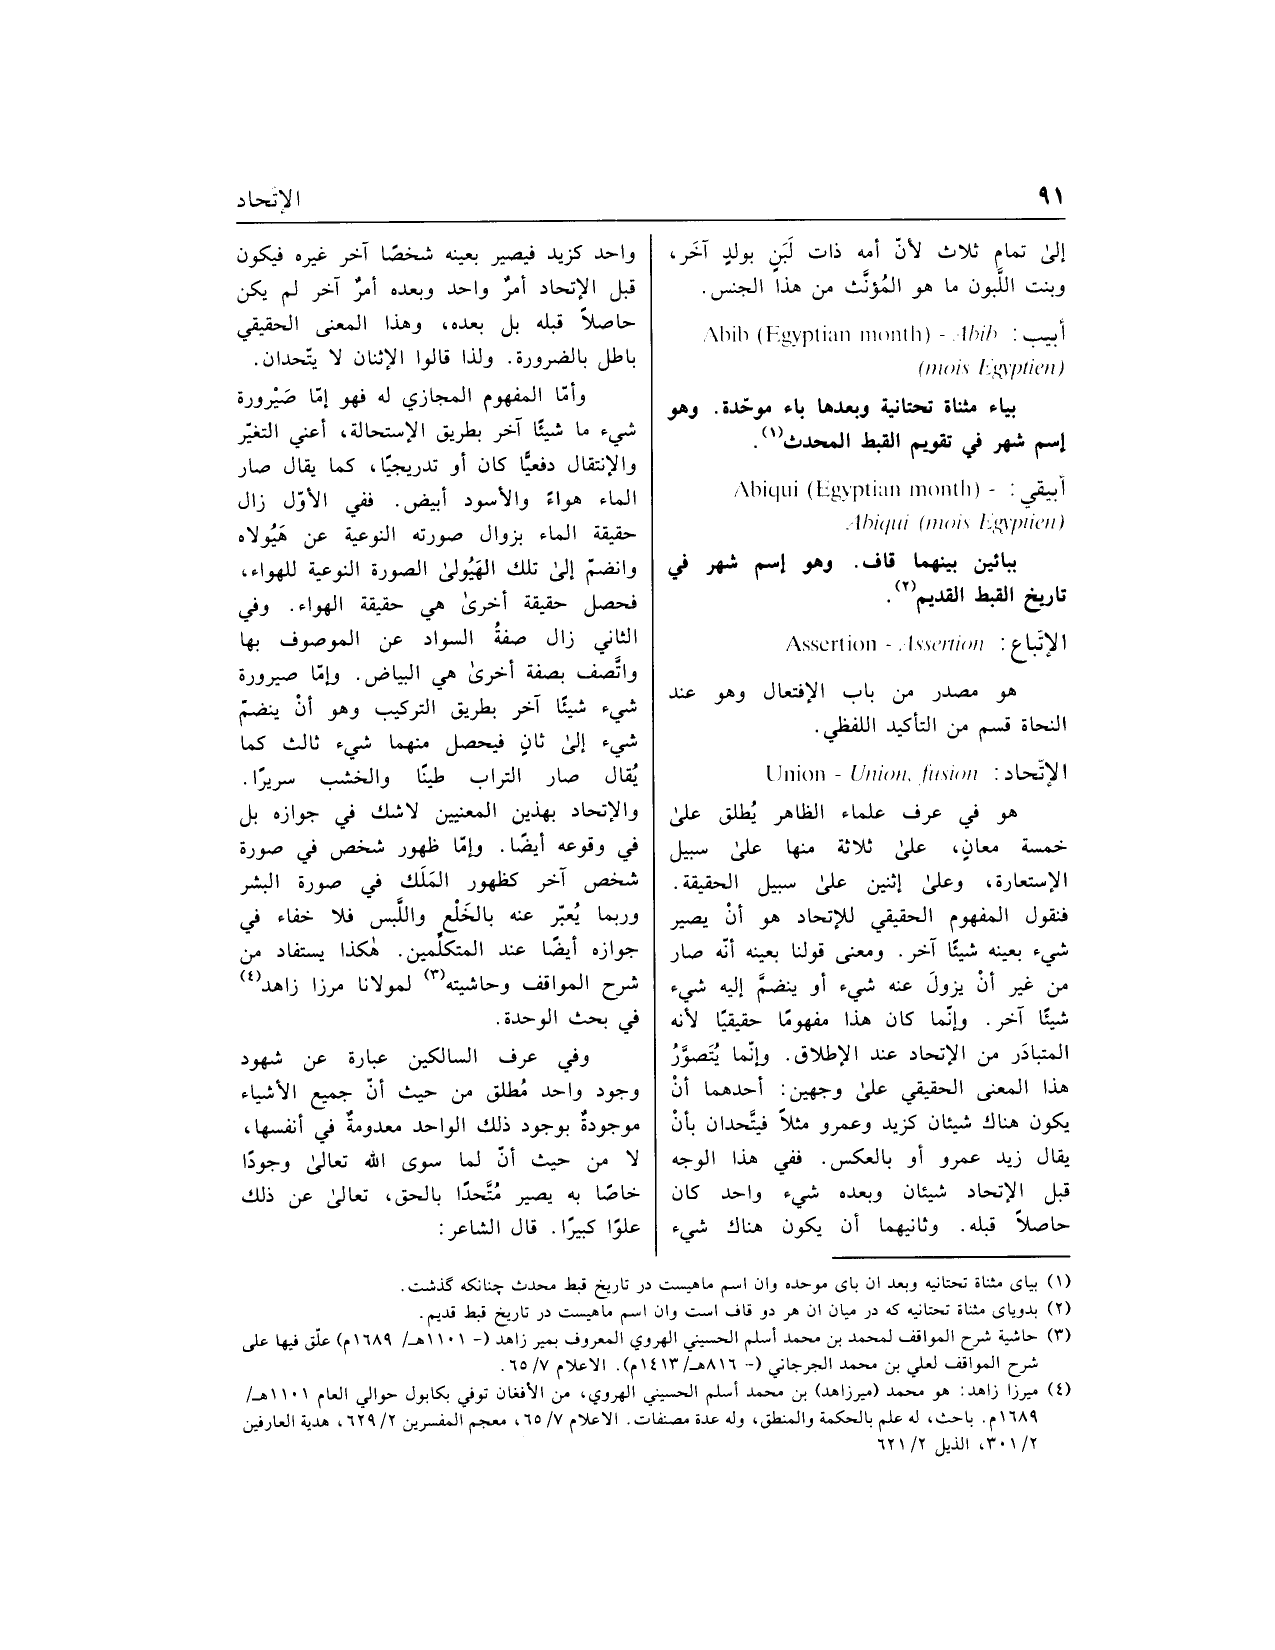 ٩١
الإتحاد
إلىٰ تمام ثلاث لأنّ أمه ذات لَبَنٍ بولدٍ آخَر،
وبنت اللَّبون ما هو المُؤنَّث من هذا الجنس.
أبيب: Abib (Egyptian month) - Abib
(mois Egyptien)
بياء مثناة تحتانية وبعدها باء موحّدة. وهو
إسم شهر في تقويم القبط المحدث(١).
أبيقي: Abiqui (Egyptian month) -
Abiqui (mois Egyptien)
بيائين بينهما قاف. وهو إسم شهر في
تاريخ القبط القديم(٢).
الإتَباع: Assertion - Assertion
هو مصدر من باب الإفتعال وهو عند
النحاة قسم من التأكيد اللفظي.
الإتّحاد: Union - Union, fusion
هو في عرف علماء الظاهر يُطلق علىٰ
خمسة معانٍ، علىٰ ثلاثة منها علىٰ سبيل
الإستعارة، وعلىٰ إثنين علىٰ سبيل الحقيقة.
فنقول المفهوم الحقيقي للإتحاد هو أنْ يصير
شيء بعينه شيئًا آخر. ومعنى قولنا بعينه أنّه صار
من غير أنْ يزولَ عنه شيء أو ينضمَّ إليه شيء
شيئًا آخر. وإنّما كان هذا مفهومًا حقيقيًا لأنه
المتبادَر من الإتحاد عند الإطلاق. وإنّما يُتَصوَّرُ
هذا المعنى الحقيقي علىٰ وجهين: أحدهما أنْ
يكون هناك شيئان كزيد وعمرو مثلاً فيتَّحدان بأنْ
يقال زيد عمرو أو بالعكس. ففي هذا الوجه
قبل الإتحاد شيئان وبعده شيء واحد كان
حاصلاً قبله. وثانيهما أن يكون هناك شيء
واحد كزيد فيصير بعينه شخصًا آخر غيره فيكون
قبل الإتحاد أمرٌ واحد وبعده أمرٌ آخر لم يكن
حاصلاً قبله بل بعده، وهذا المعنى الحقيقي
باطل بالضرورة. ولذا قالوا الإثنان لا يتّحدان.
وأمّا المفهوم المجازي له فهو إمّا صَيْرورة
شيء ما شيئًا آخر بطريق الإستحالة، أعني التغيّر
والإنتقال دفعيًّا كان أو تدريجيًا، كما يقال صار
الماء هواءً والأسود أبيض. ففي الأوّل زال
حقيقة الماء بزوال صورته النوعية عن هَيُولاه
وانضمّ إلىٰ تلك الهَيُولىٰ الصورة النوعية للهواء،
فحصل حقيقة أخرىٰ هي حقيقة الهواء. وفي
الثاني زال صفةُ السواد عن الموصوف بها
واتَّصف بصفة أخرىٰ هي البياض. وإمّا صيرورة
شيء شيئًا آخر بطريق التركيب وهو أنْ ينضمّ
شيء إلىٰ ثانٍ فيحصل منهما شيء ثالث كما
يُقال صار التراب طينًا والخشب سريرًا.
والإتحاد بهذين المعنيين لاشك في جوازه بل
في وقوعه أيضًا. وإمّا ظهور شخص في صورة
شخص آخر كظهور المَلَك في صورة البشر
وربما يُعبّر عنه بالخَلْعِ واللَّبس فلا خفاء في
جوازه أيضًا عند المتكلّمين. هٰكذا يستفاد من
شرح المواقف وحاشيته(٣) لمولانا مرزا زاهد(٤)
في بحث الوحدة.
وفي عرف السالكين عبارة عن شهود
وجود واحد مُطلق من حيث أنّ جميع الأشياء
موجودةٌ بوجود ذلك الواحد معدومةٌ في أنفسها،
لا من حيث أنّ لما سوى الله تعالىٰ وجودًا
خاصًا به يصير مُتَّحدًا بالحق، تعالىٰ عن ذلك
علوًا كبيرًا. قال الشاعر:
(١) بياى مثناة تحتانيه وبعد ان باى موحده وان اسم ماهيست در تاريخ قبط محدث چنانكه گذشت.
(٢) بدوياى مثناة تحتانيه كه در ميان ان هر دو قاف است وان اسم ماهيست در تاريخ قبط قديم.
(٣) حاشية شرح المواقف لمحمد بن محمد أسلم الحسيني الهروي المعروف بمير زاهد (- ١١٠١هـ/ ١٦٨٩م) علّق فيها على
شرح المواقف لعلي بن محمد الجرجاني (- ٨١٦هـ/١٤١٣م). الاعلام ٧/ ٦٥.
(٤) ميرزا زاهد: هو محمد (ميرزاهد) بن محمد أسلم الحسيني الهروي، من الأفغان توفي بكابول حوالي العام ١١٠١هـ/
١٦٨٩م. باحث، له علم بالحكمة والمنطق، وله عدة مصنفات. الاعلام ٧/ ٦٥، معجم المفسرين ٢/ ٦٢٩، هدية العارفين
٢/ ٣٠١، الذيل ٢/ ٦٢١